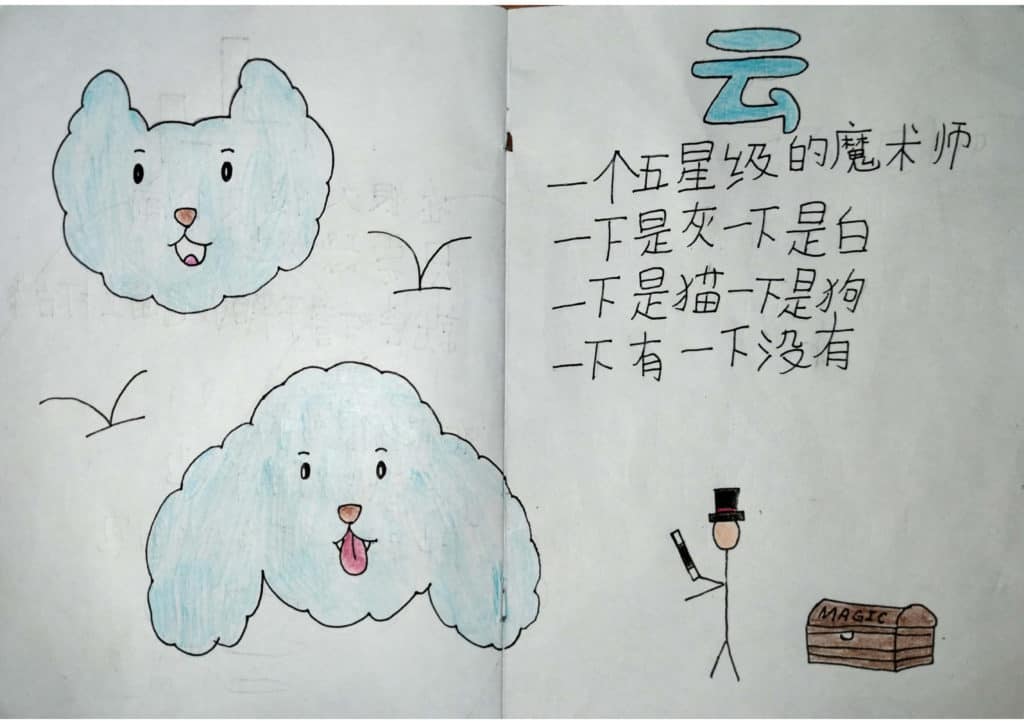 云
一个五星级的魔术师
一下是灰一下是白
一下是猫一下是狗
一下有一下没有
MAGIC